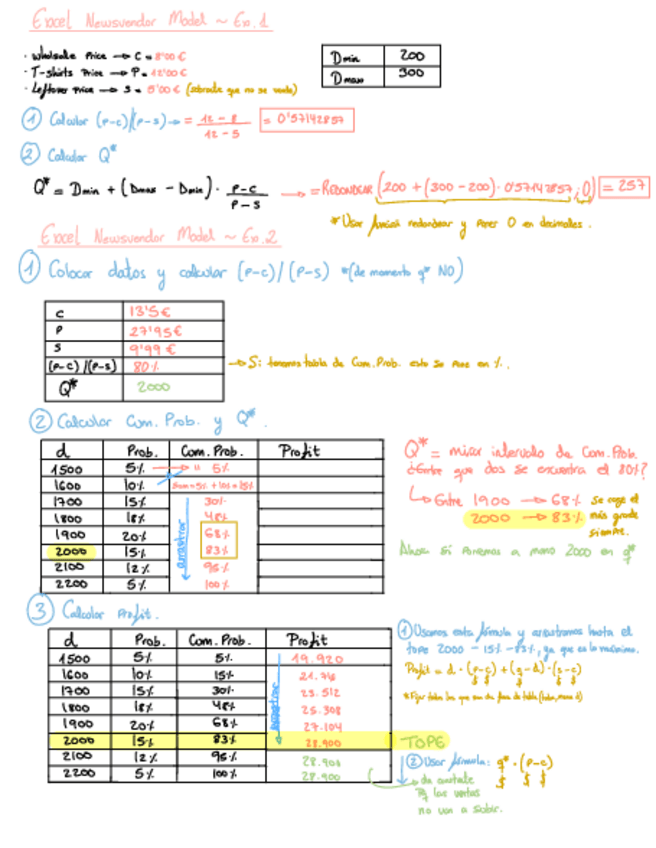 Excel Newsvendor Model ~ Ex.1
· wholesale Price → C = 8'00 €
· T-shirts Price → P = 12'00 €
· Leftover Price → S = 5'00 € (sobrante que no se vende)
Dmin 200
Dmax 300
① Calcular (P-c)/(P-s) → = 12 - 8 / 12 - 5 = 0'57142857
② Calcular Q*
Q* = Dmin + (Dmax - Dmin) · P-C / P-S → = REDONDEAR (200 + (300 - 200) · 0'57142857 ; 0) = 257
* Usar función redondear y poner 0 en decimales.
Excel Newsvendor Model ~ Ex.2
① Colocar datos y calcular (P-c)/(P-s) *(de momento q* NO)
C 13'5 €
P 27'95 €
S 9'99 €
(P-c)/(P-s) 80% → Si tenemos tabla de Com.Prob. esto se pone en %.
Q* 2000
② Calcular Com. Prob. y Q*.
d Prob. Com. Prob. Profit
1500 5% → " 5%
1600 10% Sum=5% + 10%=15%
1700 15% 30%
1800 18% 48%
1900 20% 68%
2000 15% 83%
2100 12% 95%
2200 5% 100%
arrastrar
Q* = mirar intervalo de Com. Prob.
¿Entre que dos se encuentra el 80%?
↳ Entre 1900 → 68%
2000 → 83%
se coge el más grande siempre.
Ahora sí ponemos a mano 2000 en q*
③ Calcular Profit.
d Prob. Com. Prob. Profit
1500 5% 5% 19.920
1600 10% 15%
1700 15% 30% 23.512
1800 18% 48% 25.308
1900 20% 68% 27.104
2000 15% 83% 28.900 TOPE
2100 12% 95% 28.900
2200 5% 100% 28.900
arrastrar
① Usamos esta fórmula y arrastramos hasta el
tope 2000 - 15% - 83%, ya que es lo máximo.
Profit = d · (P-c) + (q-d) · (s-c)
② Usar fórmula: q* · (P-c)
las ventas
no van a subir.